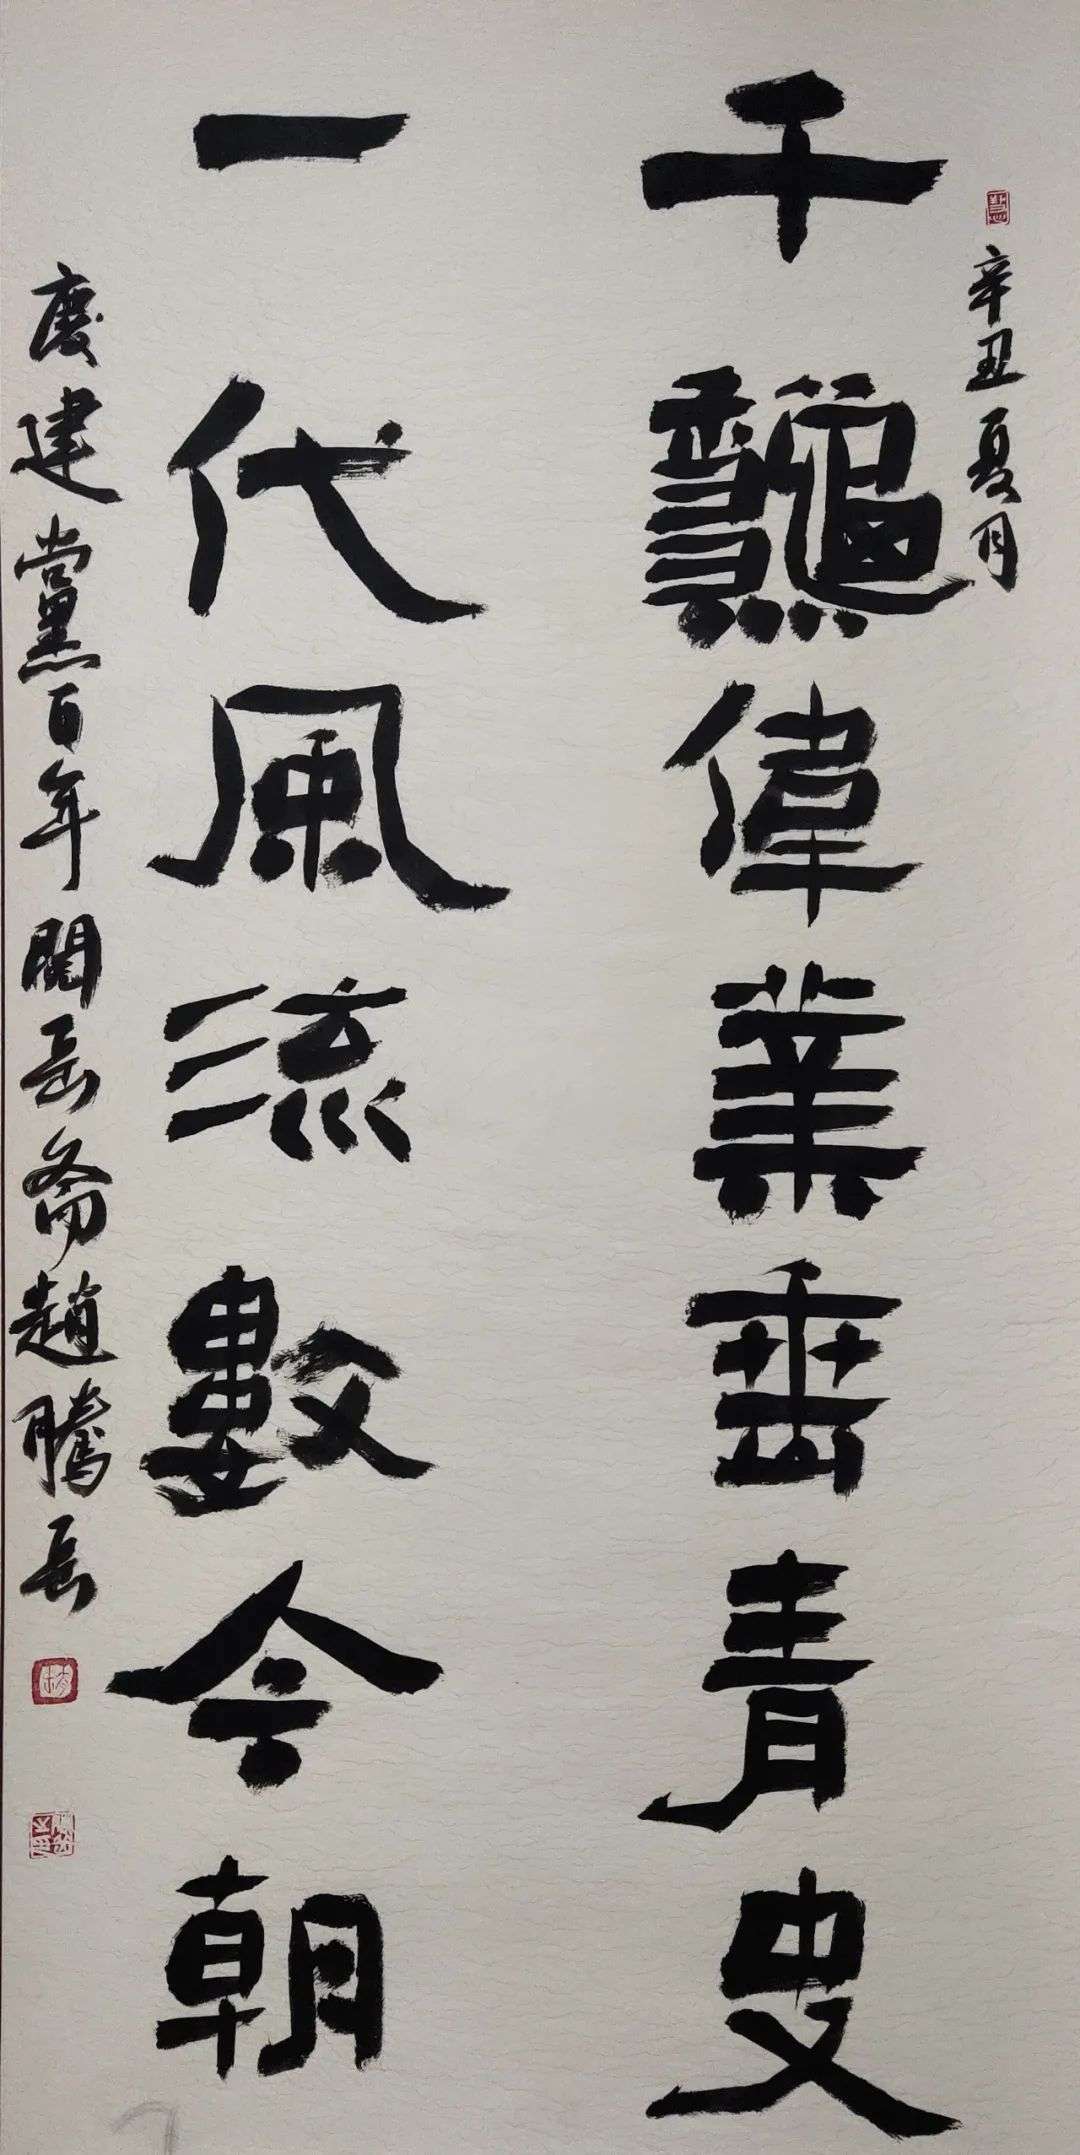 辛丑夏月
千龝偉業垂青史
一代風流數今朝
慶建黨百年岳斋趙騰岳